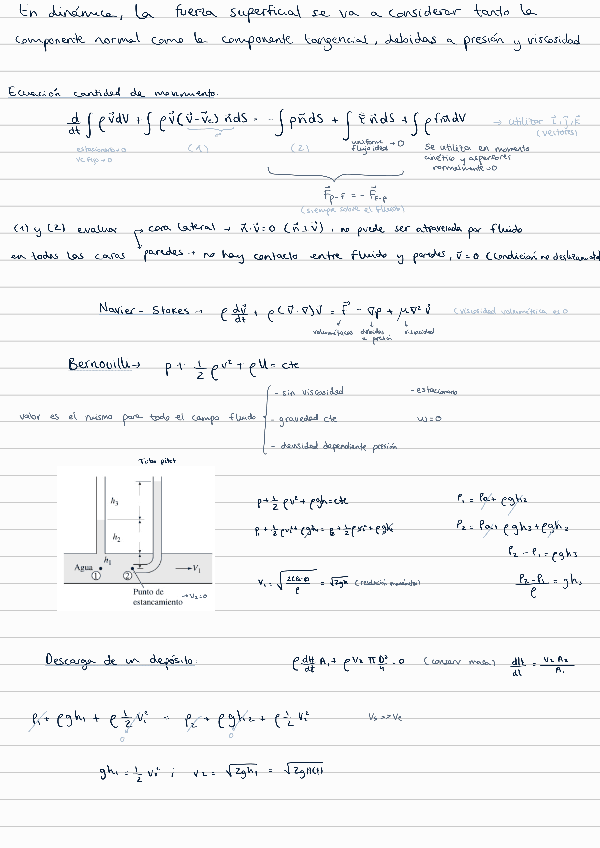 En dinámica, la fuerza superficial se va a considerar tanto la
componente normal como la componente tangencial, debidas a presión y viscosidad
Ecuación cantidad de movimiento.
d/dt ∫ ρv⃗dV + ∫ ρv⃗(v⃗-v⃗c) n⃗dS = -∫ pn⃗dS + ∫ τ n⃗dS + ∫ ρf⃗m dV → utilizar i⃗, j⃗, k⃗
(vectores)
estacionario=0
Vc fijo → 0
(1)
(2)
uniforme
flujo ideal → 0
se utiliza en momento
cinético y aspersores
normalmente=0
F⃗p-F = - F⃗F-p
(siempre sobre el fluido)
(1) y (2) evaluar → cara lateral → n⃗·v⃗=0 (n⃗⊥v⃗), no puede ser atravesada por fluido
en todas las caras → paredes → no hay contacto entre fluido y paredes, v⃗=0 (condición no deslizamiento
Navier-Stokes → ρ dv⃗/dt + ρ(v⃗·∇)v⃗ = f⃗ - ∇p + μ∇²v⃗ (viscosidad volumétrica es 0
volumétricas debidas a presión viscosidad
Bernouilli → p + 1/2 ρv² + ρU = cte
- sin viscosidad - estacionario
valor es el mismo para todo el campo fluido - gravedad cte ω=0
- densidad dependiente presión
Tubo pitot
h3
h2
h1
Agua
①
②
V1
Punto de
estancamiento → V2=0
p+1/2 ρv² + ρgh=cte
P1+1/2ρv1²+ρgh1=P2+1/2ρv2²+ρgh2
V1 = √(2(P2-P1)/ρ) = √2gh (resolución manómetro)
P1 = Pa + ρgh2
P2 = Pa + ρgh3+ρgh2
P2 - P1 = ρgh3
(P2-P1)/ρ = gh3
Descarga de un depósito. ρ dH/dt A1 + ρV2 π D²/4 = 0 (conserv masa) dh/dt = V2 A2/A1
P1 + ρgh1 + ρ 1/2 V1² = P2 + ρgh2 + ρ 1/2 V2²
0
0
gh1 = 1/2 V2² ; V2 = √2gh1 = √2gH(t)